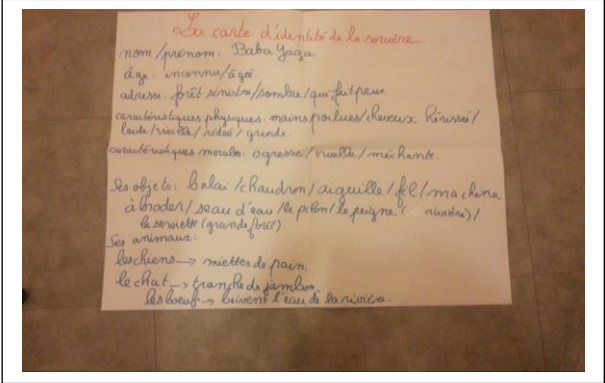 La carte d'identité de la sorcière...
nom/prénom: Baba Yaga
âge: inconnu/âgé.
adresse: forêt sinistre/sombre/qui fait peur.
caractéristiques physiques: mains poilues/cheveux hérissé/
laide/vieille/ridée/grande.
caractéristiques morales: ogresse/cruelle/méchante.
Ses objets: balai/chaudron/aiguille/fil/machine
à broder/seau d'eau/le pilon/le peigne ( rivière)/
la serviette (grande forêt)
Ses animaux:
les chiens → miettes de pain.
le chat → tranche de jambon.
les boeufs → boivent l'eau de la rivière.